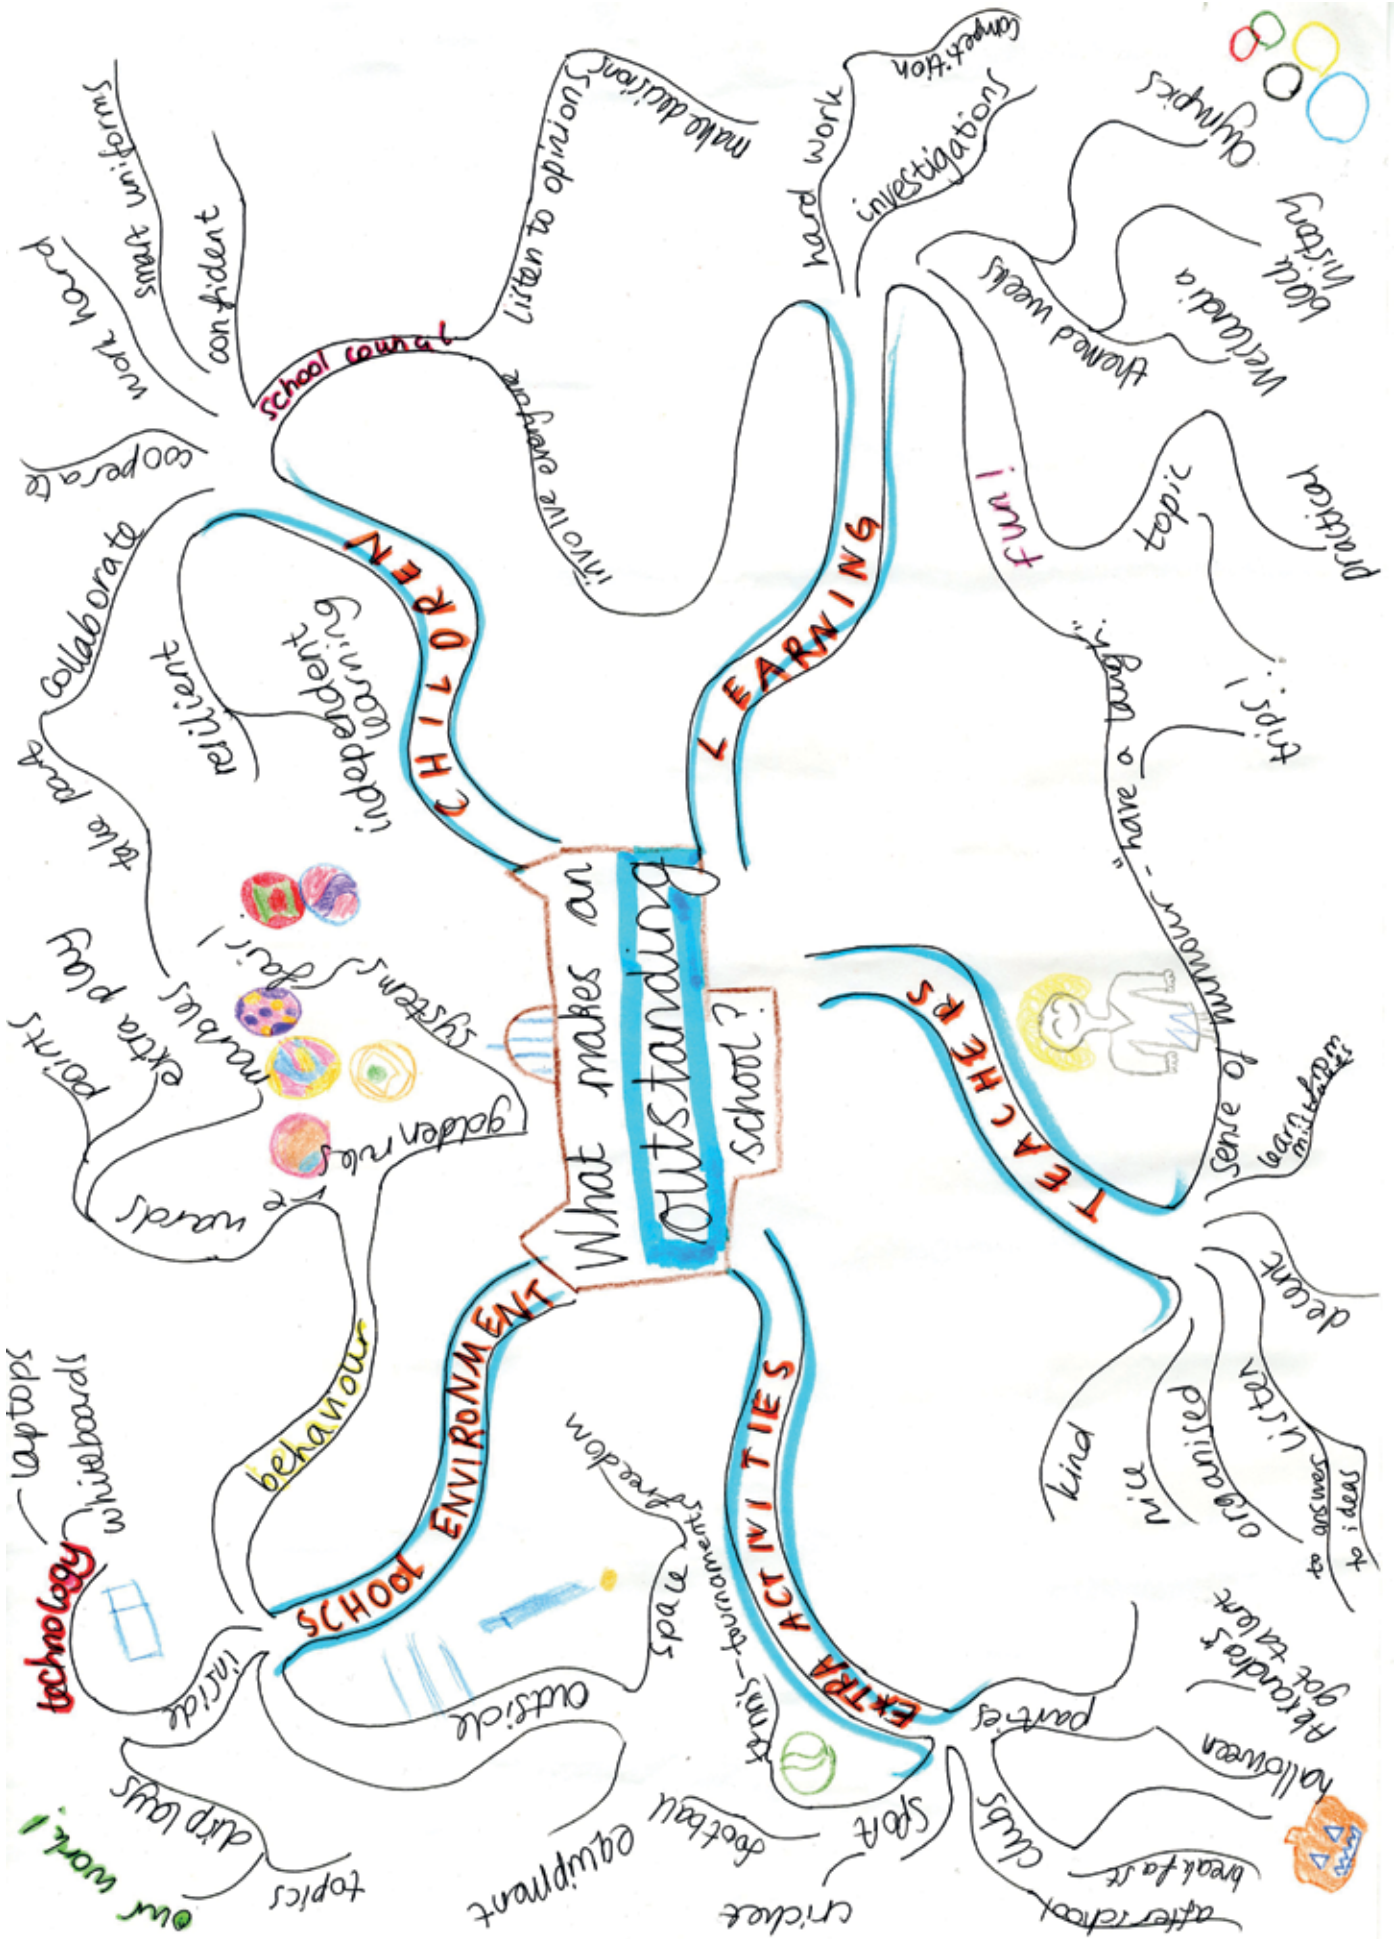 What makes an
outstanding
school?
CHILDREN
school council
listen to opinions
make decisions
involve everyone
confident
smart uniforms
work hard
cooperate
collaborate
take part
resilient
independent
learning
LEARNING
hard work
competition
investigations
themed weeks
Olympics
black
history
fun!
topic
practical
trips!
TEACHERS
sense of humour - "have a laugh"
learn from
mistakes
decent
listen
to answers
to ideas
organised
nice
kind
EXTRA ACTIVITIES
parties
Alexandra's
got talent
halloween
clubs
breakfast
afterschool
sport
cricket
football
tennis - tournaments
SCHOOL ENVIRONMENT
outside
space
freedom
equipment
inside
displays
topics
our work!
technology
whiteboards
laptops
behaviour
golden rules
systems
fair!
rewards
marbles
extra play
points